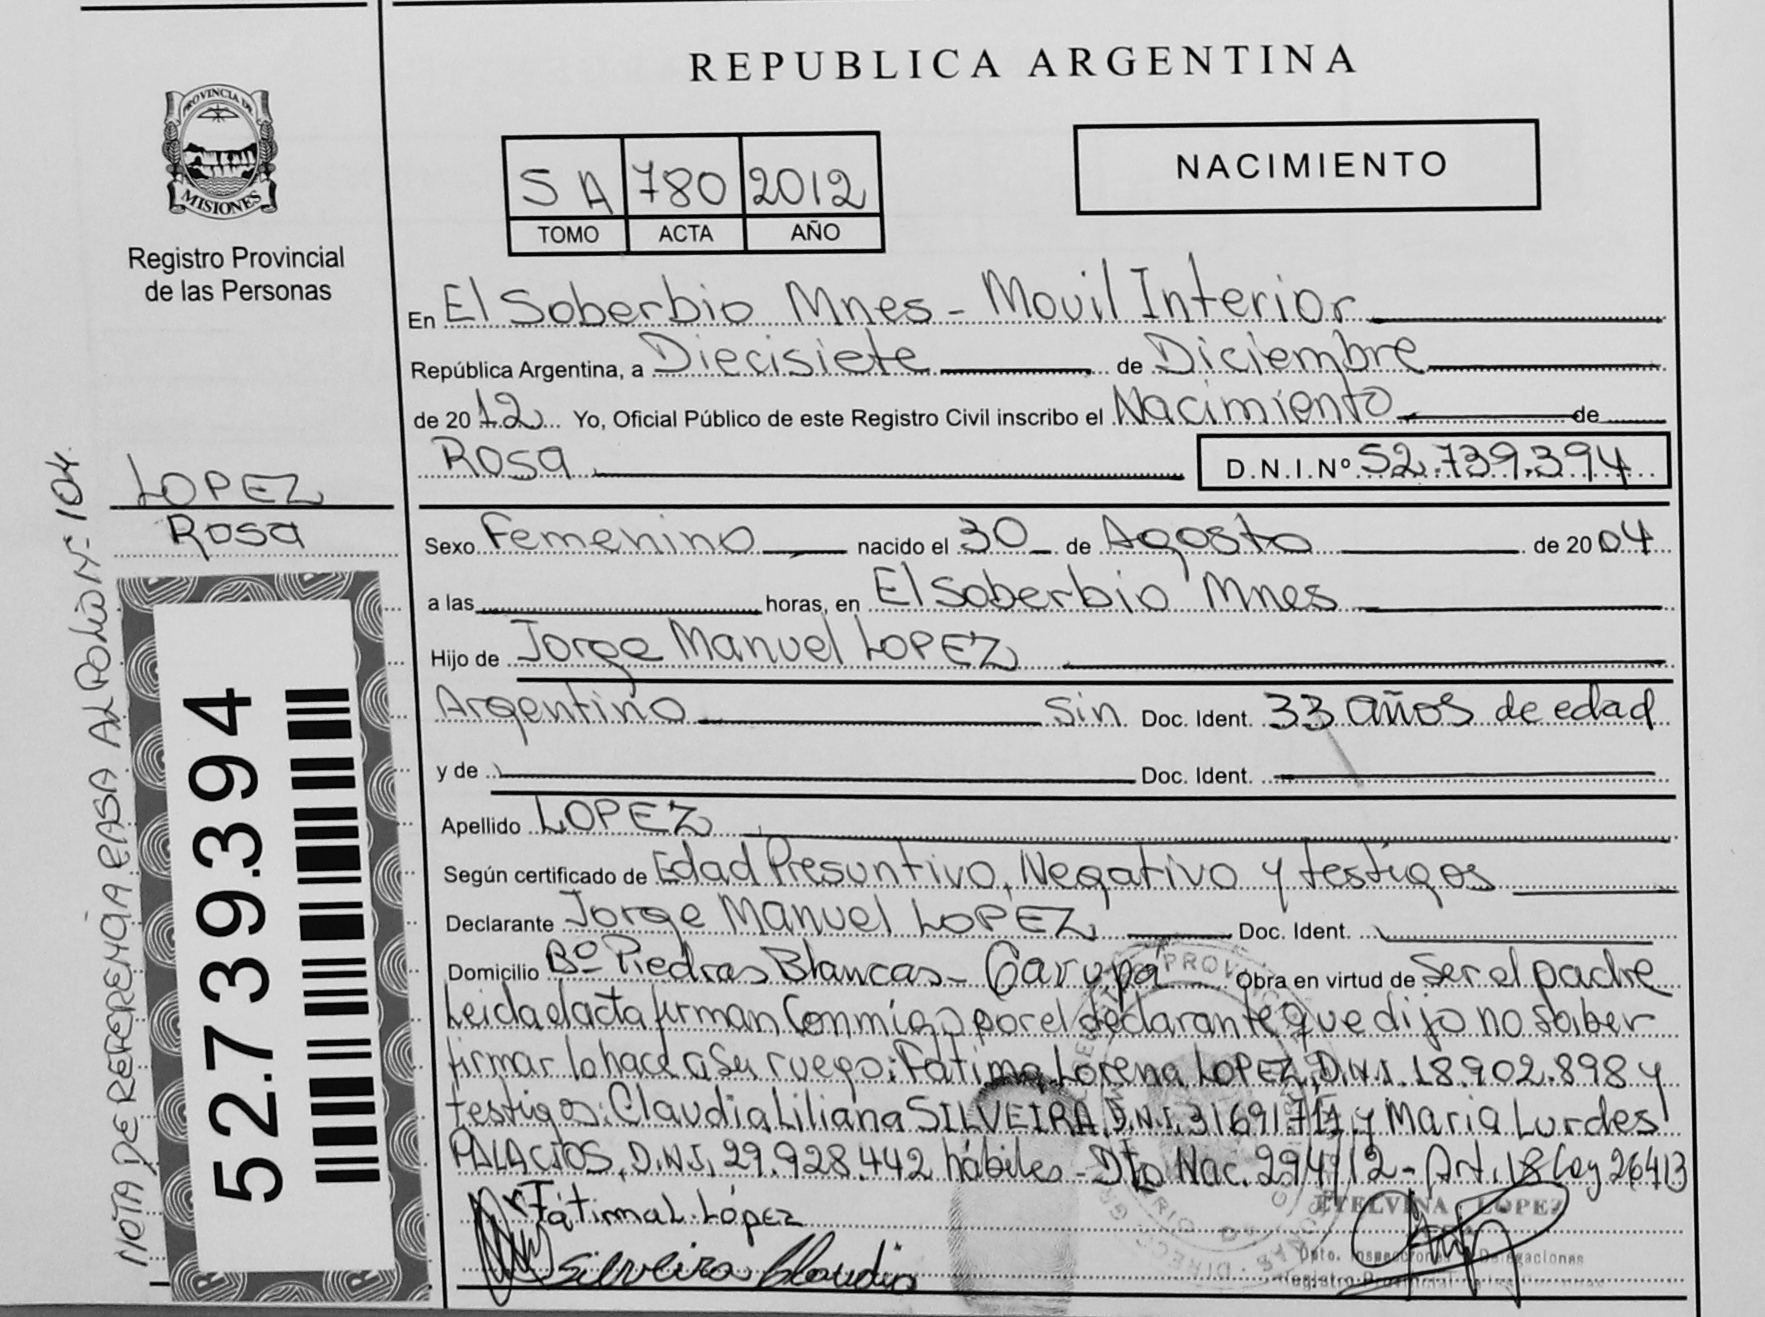 REPUBLICA ARGENTINA
PROVINCIA DE
MISIONES
Registro Provincial
de las Personas
S A 780 2012
TOMO ACTA AÑO
NACIMIENTO
En El Soberbio Mnes - Movil Interior
República Argentina, a Diecisiete de Diciembre
de 2012 Yo, Oficial Público de este Registro Civil inscribo el Nacimiento de
Rosa D.N.I.Nº 52.739.394
LOPEZ
Rosa
Sexo Femenino nacido el 30 de Agosto de 2004
a las horas, en El Soberbio Mnes
Hijo de Jorge Manuel LOPEZ
Argentino Sin Doc. Ident. 33 años de edad
y de Doc. Ident.
Apellido LOPEZ
Según certificado de Edad Presuntivo, Negativo y testigos
Declarante Jorge Manuel LOPEZ Doc. Ident.
Domicilio Bº Piedras Blancas - Garupá Obra en virtud de Ser el padre
Leida el acta firman Conmigo por el declarante que dijo no saber
firmar lo hace a su ruego: Fátima Lorena LOPEZ, D.N.I. 18.902.898 y
testigos: Claudia Liliana SILVEIRA, D.N.I. 31691711 y Maria Lurdes
PALACIOS, D.N.I. 29.928.442 hábiles - Dto Nac. 294/12 - Art. 18 Ley 26413
Fátima L. López
Silveira Claudia
ETELVINA LOPEZ
Dpto. Inspecciones Delegaciones
Registro Provincial
NOTA DE REFERENCIA PASA AL FOLIO Nº 104.
52.739.394